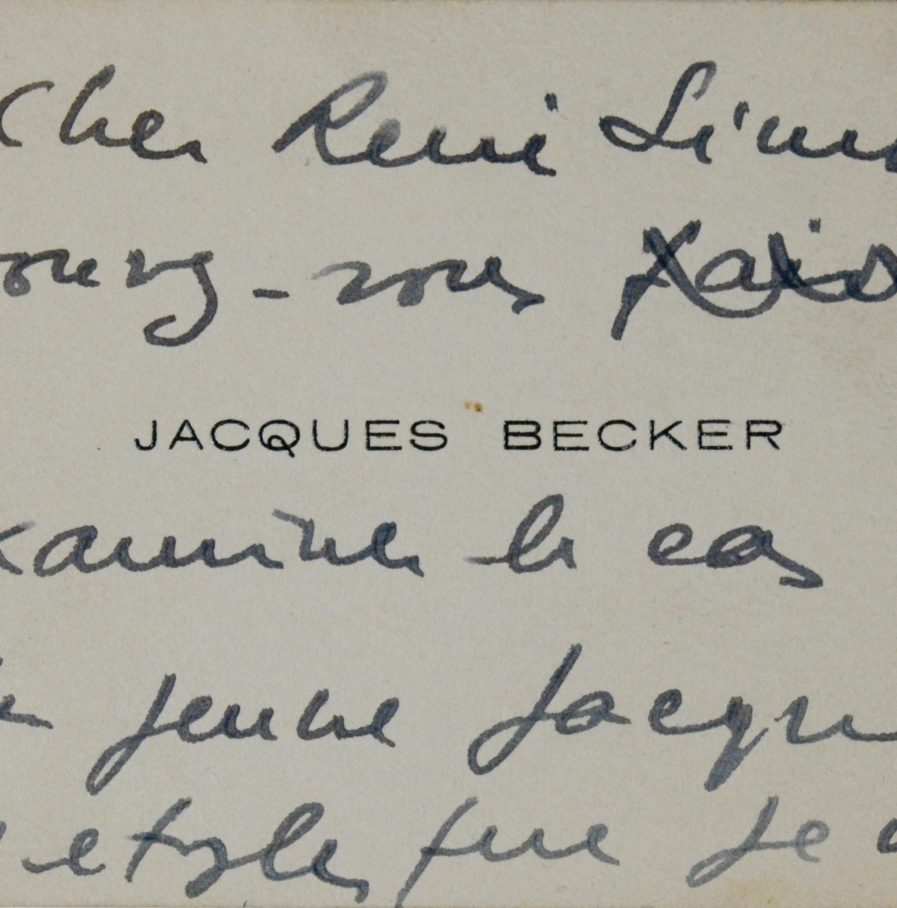 Cher René Sim
ouvez-vous
JACQUES BECKER
xaminer le cas
jeune Jacqu
que je